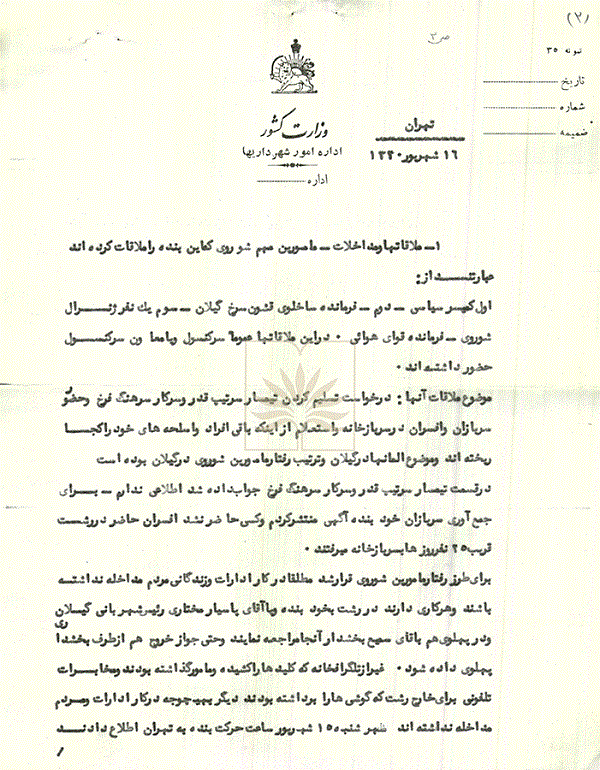 (۲)
ص ۳
نمونه ۳۵
تاریخ
شماره
ضمیمه
وزارت کشور
اداره امور شهرداریها
اداره
تهران
۱۶ شهریور ۱۳۲۰
۱ـ ملاقاتها ومداخلات ـ مامورین مهم شوروی که با این بنده را ملاقات کرده اند
عبارتند از:
اول کمیسر سیاسی ـ دوم ـ فرمانده ساخلوی قشون سرخ گیلان ـ سوم یک نفر ژنرال
شوروی ـ فرمانده قوای هوائی ۰ در این ملاقاتها عموماً سرکنسول ویا معاون سرکنسول
حضور داشته اند ۰
موضوع ملاقات آنها: درخواست تسلیم کردن تیمسار سرتیپ قدر وسرکار سرهنگ فرخ وحضور
سربازان وافسران در سربازخانه واستعلام از اینکه باقی افراد واسلحه های خود را کجا
ریخته اند وموضوع آلمانها در گیلان وترتیب رفتار مامورین شوروی در گیلان بوده است
در قسمت تیمسار سرتیپ قدر وسرکار سرهنگ فرخ جواب داده شد اطلاعی ندارم ـ برای
جمع آوری سربازان خود بنده آگهی منتشر کردم وکسی حاضر نشد افسران حاضر در رشت
قریب ۲۵ نفر روزها بسربازخانه میرفتند ۰
برای طرز رفتار مامورین شوروی قرار شد مطلقا در کار ادارات وزندگانی مردم مداخله نداشته
باشند وهر کاری دارند در رشت بخود بنده ویا آقای پاسیار مختاری رئیس شهربانی گیلان
ودر پهلوی هم باقای سمیع بخشدار آنجا مراجعه نمایند وحتی جواز خروج هم از طرف بخشداری
پهلوی داده شود ۰ غیر از تلگرافخانه که کلید ها را کشیده ومامور گذاشته بودند ومخابرات
تلفونی برای خارج رشت که گوشی ها را برداشته بودند دیگر بهیچوجه در کار ادارات ومردم
مداخله نداشته اند ظهر شنبه ۱۵ شهریور ساعت حرکت بنده به تهران اطلاع دادند